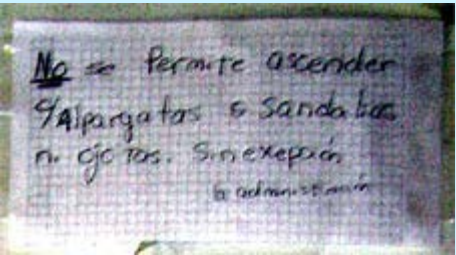 No se Permite ascender
c/Alpargatas o sandalias
ni ojotas. Sin exepción
la administración